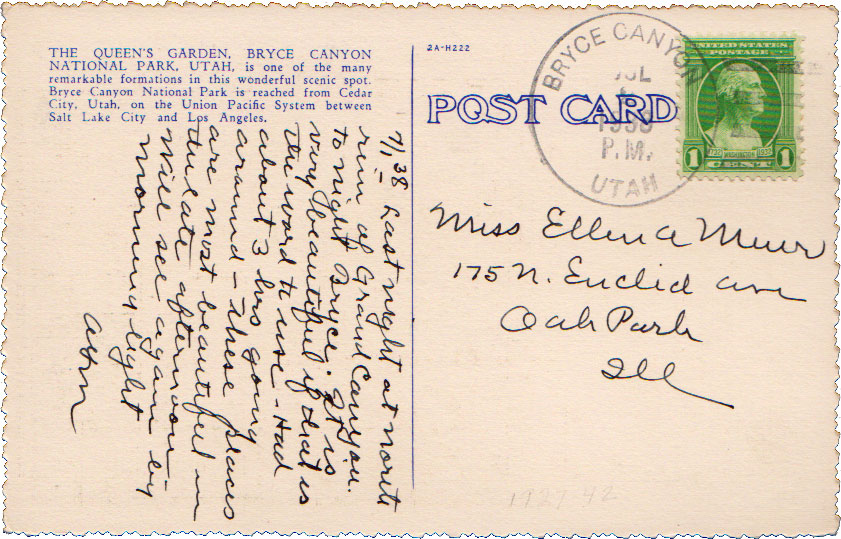 THE QUEEN'S GARDEN, BRYCE CANYON
NATIONAL PARK, UTAH, is one of the many
remarkable formations in this wonderful scenic spot.
Bryce Canyon National Park is reached from Cedar
City, Utah, on the Union Pacific System between
Salt Lake City and Los Angeles.
7/1 38 - Last night at north
rim of Grand Canyon.
to night Bryce. It is
very beautiful if that is
the word to use - Had
about 3 hrs going
around - These places
are most beautiful in
the late afternoon -
will see again by
morning light
2A-H222
POST CARD
BRYCE CANYON
JUL
P.M.
UTAH
UNITED STATES
POSTAGE
1 WASHINGTON 1
CENT
Miss Ellen A Muir
175 N. Euclid ave
Oak Park
Ill
1927-42